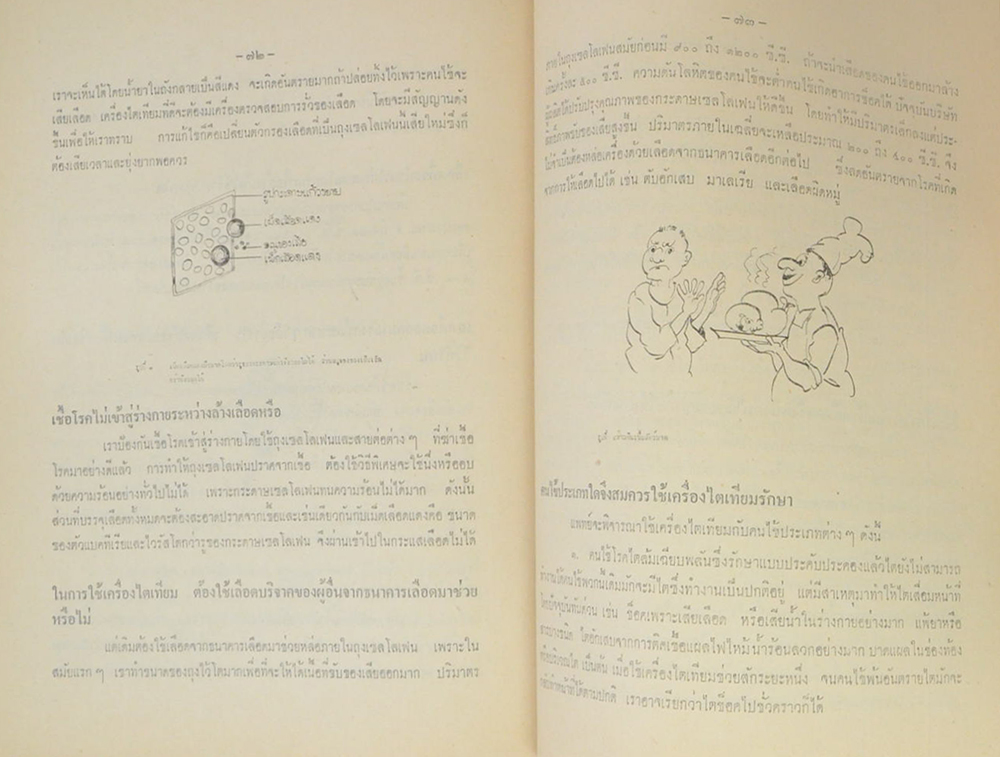 - ๗๒ -
เราจะเห็นได้โดยน้ำยาในถังกลายเป็นสีแดง จะเกิดอันตรายมากถ้าปล่อยทิ้งไว้เพราะคนไข้จะ
เสียเลือด เครื่องไตเทียมที่ดีจะต้องมีเครื่องตรวจสอบการรั่วของเลือด โดยจะมีสัญญาณดัง
ขึ้นเพื่อให้เราทราบ การแก้ไขก็คือเปลี่ยนตัวกรองเลือดที่เป็นถุงเซลโลเฟนนี้เสียใหม่ซึ่งก็
ต้องเสียเวลาและยุ่งยากพอควร
เม็ดเลือดแดง
ของเสีย
เม็ดเลือดแดง
รูปที่
เชื้อโรคไม่เข้าสู่ร่างกายระหว่างล้างเลือดหรือ
เราป้องกันเชื้อโรคเข้าสู่ร่างกายโดยใช้ถุงเซลโลเฟนและสายต่อต่าง ๆ ที่ฆ่าเชื้อ
โรคมาอย่างดีแล้ว การทำให้ถุงเซลโลเฟนปราศจากเชื้อ ต้องใช้วิธีพิเศษจะใช้นึ่งหรืออบ
ด้วยความร้อนอย่างทั่วไปไม่ได้ เพราะกระดาษเซลโลเฟนทนความร้อนไม่ได้มาก ดังนั้น
ส่วนที่บรรจุเลือดทั้งหมดจะต้องสะอาดปราศจากเชื้อและเช่นเดียวกันกับเม็ดเลือดแดงคือ ขนาด
ของตัวแบคทีเรียและไวรัสโตกว่ารูของกระดาษเซลโลเฟน จึงผ่านเข้าไปในกระแสเลือดไม่ได้
ในการใช้เครื่องไตเทียม ต้องใช้เลือดบริจาคของผู้อื่นจากธนาคารเลือดมาช่วย
หรือไม่
แต่เดิมต้องใช้เลือดจากธนาคารเลือดมาช่วยหล่อภายในถุงเซลโลเฟน เพราะใน
สมัยแรก ๆ เราทำขนาดของถุงไว้โตมากเพื่อที่จะให้ได้เนื้อที่ขับของเสียออกมาก ปริมาตร
- ๗๓ -
ภายในถุงเซลโลเฟนสมัยก่อนมี ๙๐๐ ถึง ๑๒๐๐ ซี.ซี. ถ้าจะนำเลือดของคนไข้ออกมาล้าง
ครั้งละ ๙๐๐ ซี.ซี. ความดันโลหิตของคนไข้จะต่ำคนไข้เกิดอาการช็อคได้ ปัจจุบันบริษัท
ผู้ผลิตได้ปรับปรุงคุณภาพของกระดาษเซลโลเฟนให้ดีขึ้น โดยทำให้มีปริมาตรเล็กลงแต่ประ-
สิทธิภาพขับของเสียสูงขึ้น ปริมาตรภายในเฉลี่ยจะเหลือประมาณ ๒๐๐ ถึง ๔๐๐ ซี.ซี. จึง
ไม่จำเป็นต้องหล่อเครื่องด้วยเลือดจากธนาคารเลือดอีกต่อไป ซึ่งลดอันตรายจากโรคที่เกิด
จากการให้เลือดไปได้ เช่น ตับอักเสบ มาเลเรีย และเลือดผิดหมู่
รูปที่
คนไข้ประเภทใดจึงสมควรใช้เครื่องไตเทียมรักษา
แพทย์จะพิจารณาใช้เครื่องไตเทียมกับคนไข้ประเภทต่าง ๆ ดังนี้
๑. คนไข้โรคไตล้มเฉียบพลันซึ่งรักษาแบบประคับประคองแล้วไตยังไม่สามารถ
ทำงานได้คนไข้พวกนี้เดิมมักจะมีไตซึ่งทำงานเป็นปกติอยู่ แต่มีสาเหตุมาทำให้ไตเสื่อมหน้าที่
โดยปัจจุบันทันด่วน เช่น ช็อคเพราะเสียเลือด หรือเสียน้ำในร่างกายอย่างมาก แพ้ยาหรือ
สารบางชนิด ไตอักเสบจากการติดเชื้อแผลไฟไหม้น้ำร้อนลวกอย่างมาก บาดแผลในช่องท้อง
หรือบริเวณไต เป็นต้น เมื่อใช้เครื่องไตเทียมช่วยสักระยะหนึ่ง จนคนไข้พ้นอันตรายไตมักจะ
กลับทำหน้าที่ได้ตามปกติ เราอาจเรียกว่าไตช็อคไปชั่วคราวก็ได้